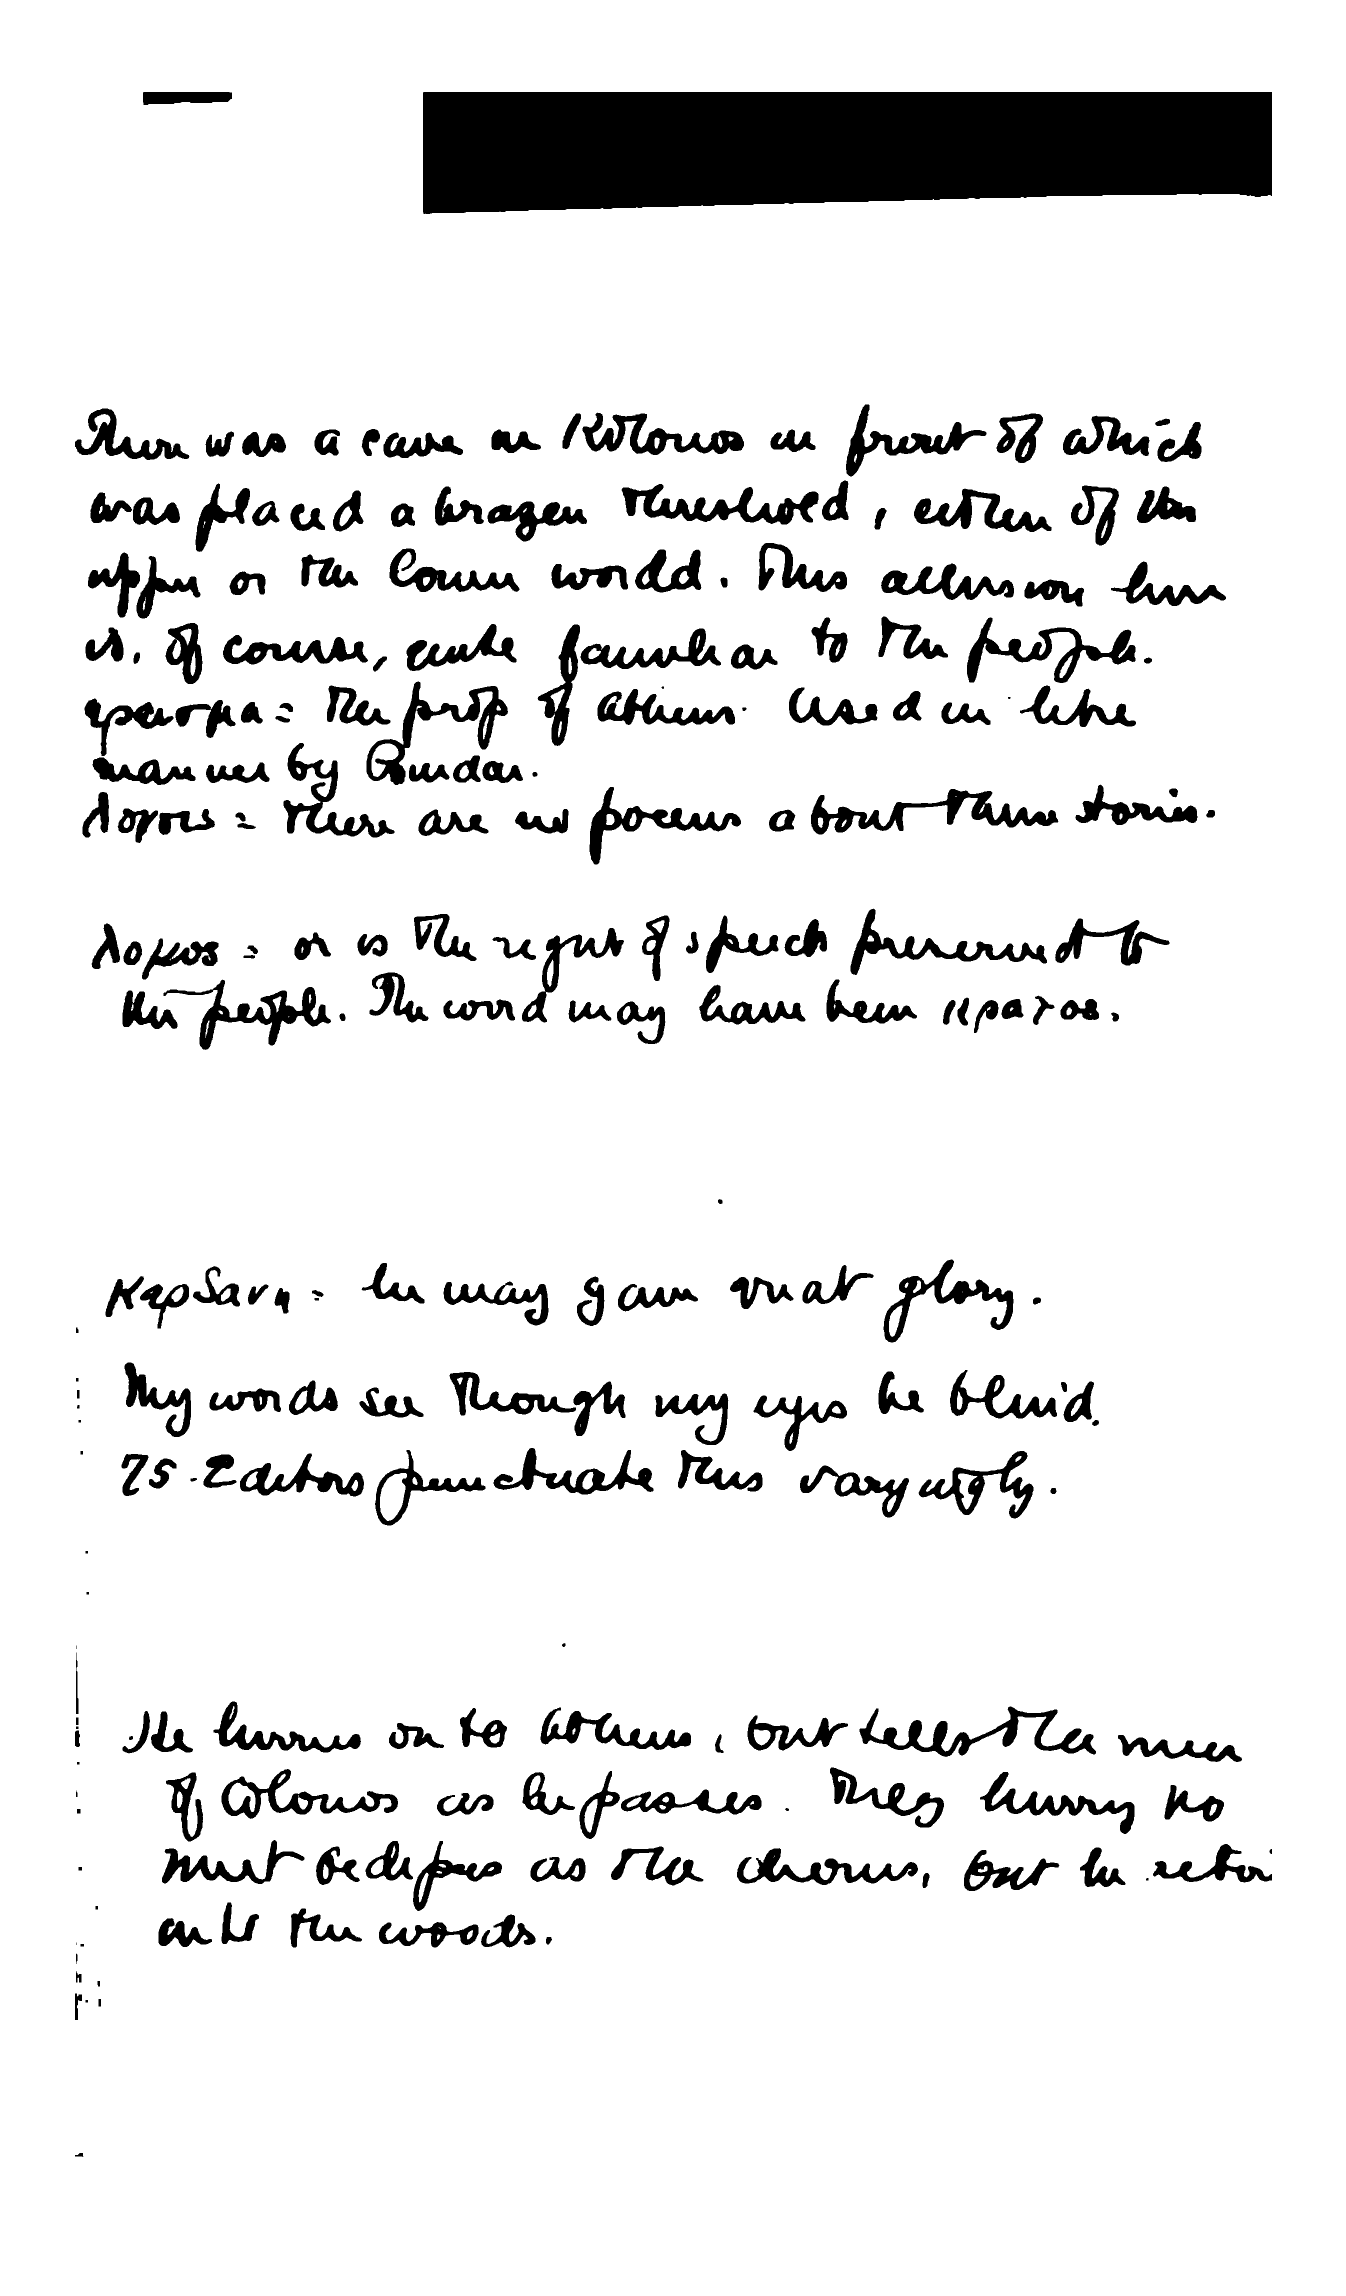 There was a cave on Kolonos in front of which
was placed a brazen threshold, either of the
upper or the lower world. This allusion here
is, of course, quite familiar to the people.
ερεισμα = the prop of Athens. Used in like
manner by Pindar.
λογοις = there are no poems about these stories.
λογος = or is the right of speech preserved to
the people. The word may have been κρατος.
κερδανη = he may gain great glory.
My words see though my eyes be blind.
75. Editors punctuate this varyingly.
He hurries on to Athens, but tells the men
of Colonos as he passes. They hurry to
meet Oedipus as the chorus, but he
into the woods.